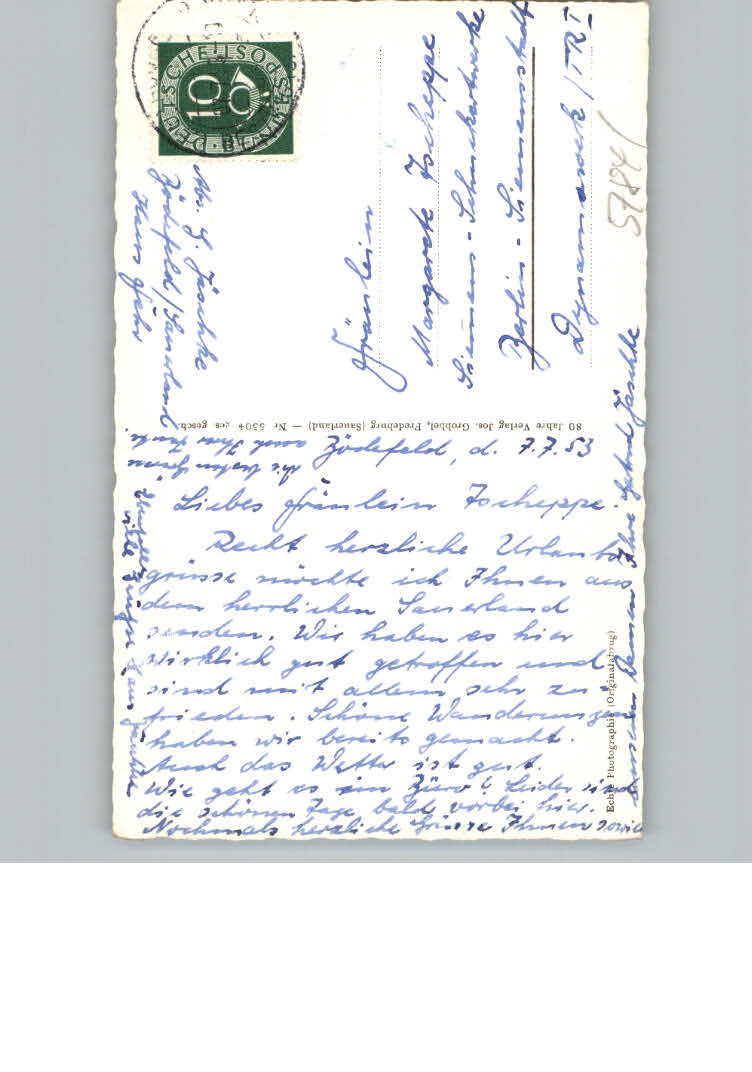 Bödefeld, d. 7.7.53
Liebes Fräulein Tscheppe.
Recht herzliche Urlaubs
grüsse möchte ich Ihnen aus
dem herrlichen Sauerland
senden. Wir haben es hier
wirklich gut getroffen und
sind mit allem sehr zu
frieden. Schöne Wanderungen
haben wir bereits gemacht.
Auch das Wetter ist gut.
Wie geht es im Büro? Leider sind
die schönen Tage bald vorbei hier.
Nochmals herzliche Grüsse Ihnen sowie
Damen Ihre Jäschke
80 Jahre Verlag Jos. Grobbel, Fredeburg (Sauerland) — Nr 5504 ges. gesch.
Echte Photographie (Originalabzug)
DEUTSCHE BUNDESPOST
10
Abs. G. Jäschke
Bödefeld/Sauerland
Haus
Fräulein
Margarete Tscheppe
Siemens-Schuckertwerke
Berlin-Siemensstadt
Dynamowerk /TRT
5784/